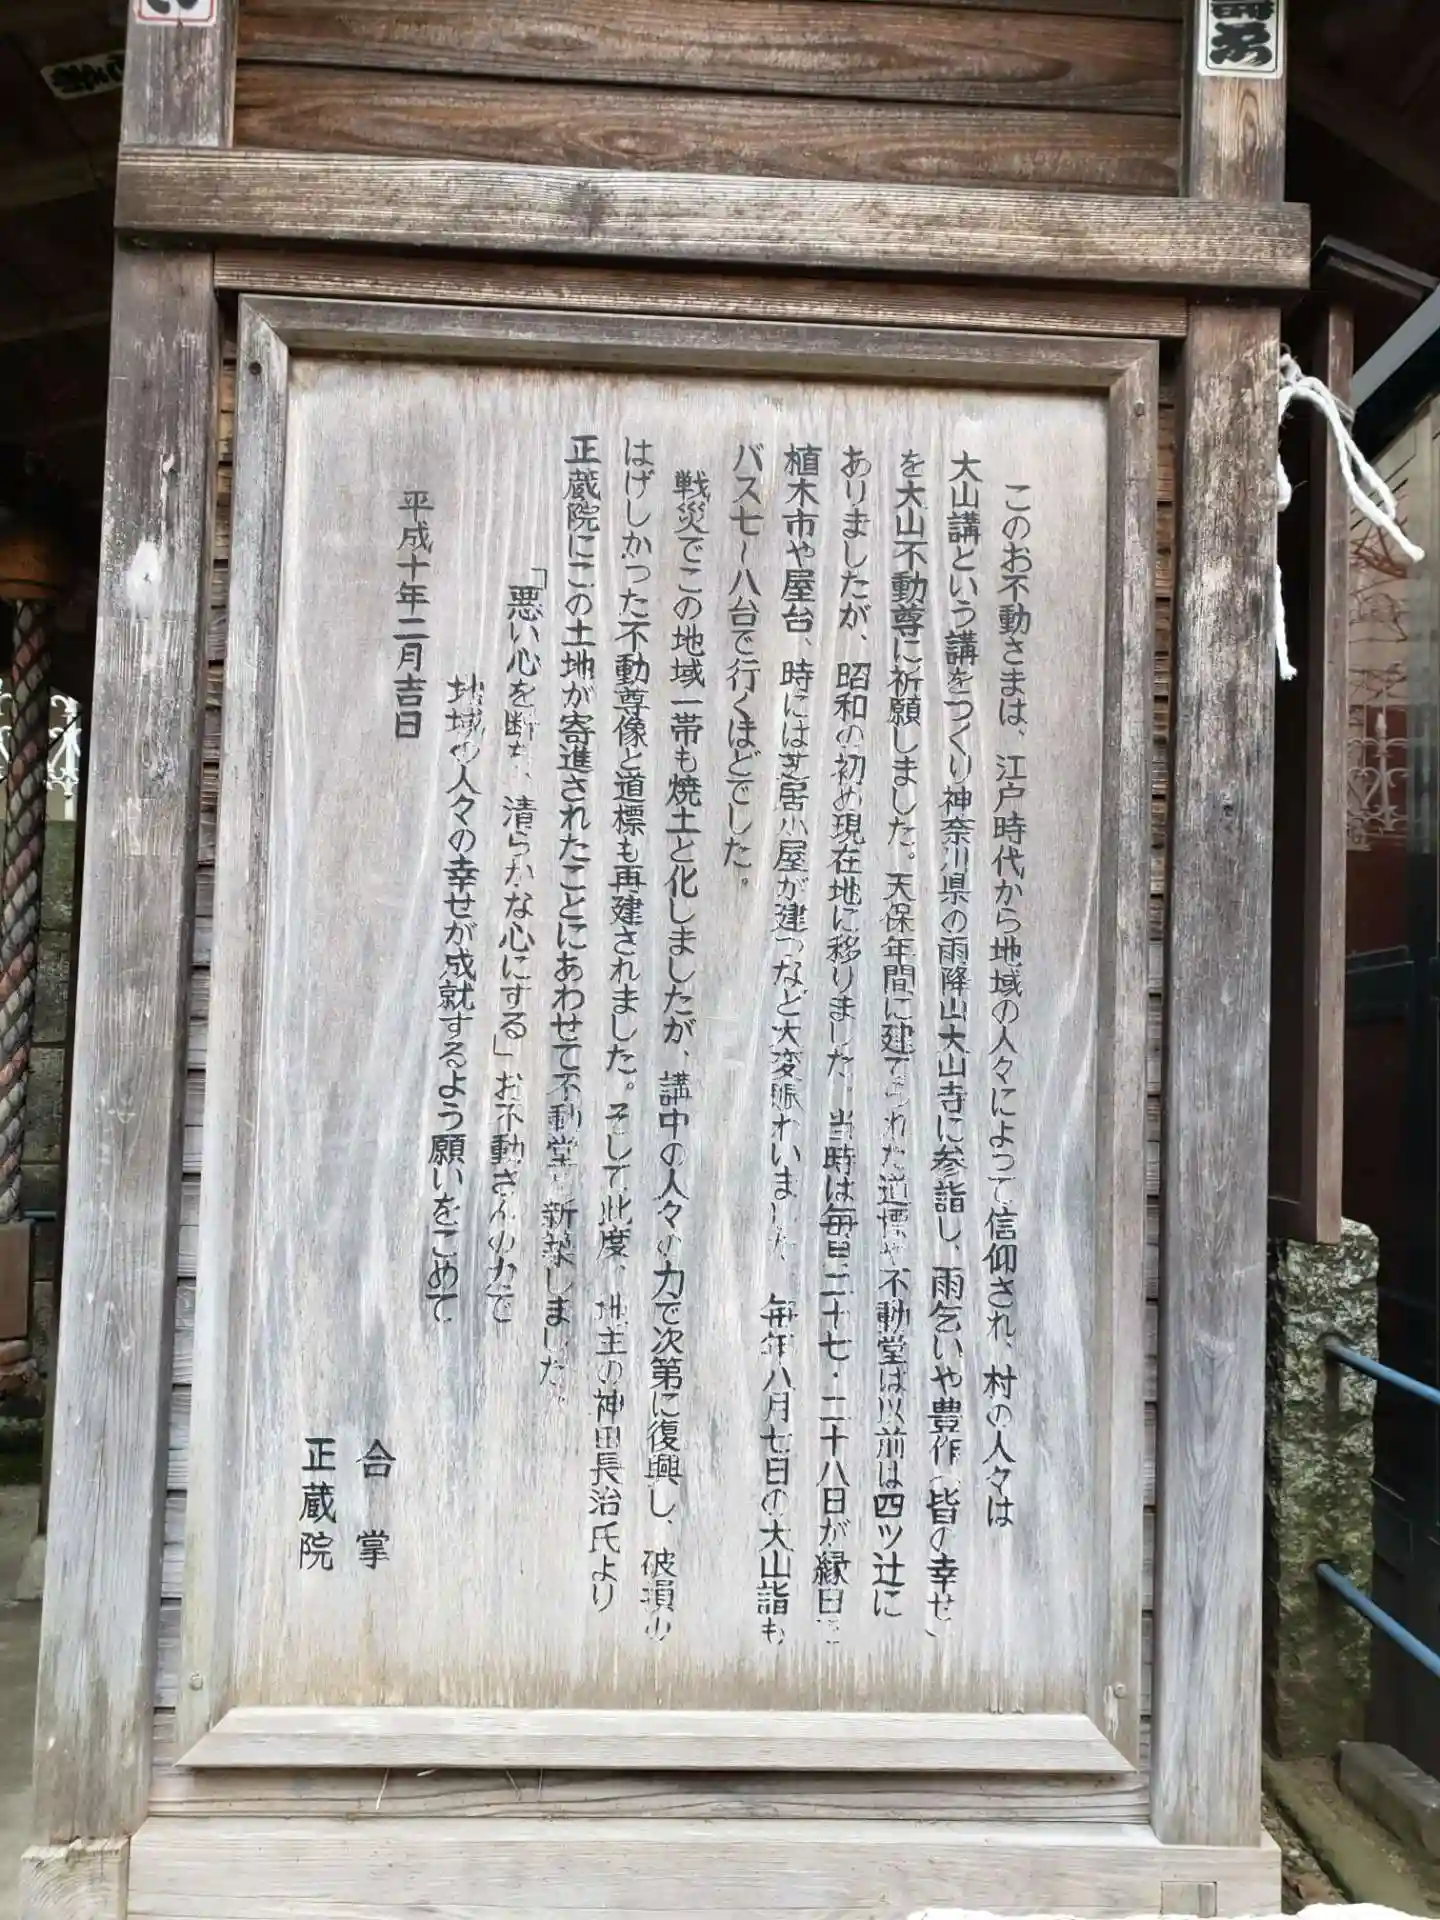 このお不動さまは、江戸時代から地域の人々によって信仰され、村の人々は
大山講という講をつくり神奈川県の雨降山大山寺に参詣し、雨乞いや豊作(皆の幸せ)
を大山不動尊に祈願しました。天保年間に建てられた道標や不動堂は以前は四ツ辻に
ありましたが、昭和の初め現在地に移りました。当時は毎日二十七・二十八日が縁日で
植木市や屋台、時には芝居小屋が建つなど大変賑わいました。毎年八月七日の大山詣も
バス七~八台で行くほどでした。
戦災でこの地域一帯も焼土と化しましたが、講中の人々の力で次第に復興し、破損の
はげしかった不動尊像と道標も再建されました。そして此度、地主の神田長治氏より
正蔵院にこの土地が寄進されたことにあわせて不動堂を新築しました。
「悪い心を断ち、清らかな心にする」お不動さんの力で
地域の人々の幸せが成就するよう願いをこめて
平成十年二月吉日
合掌
正蔵院